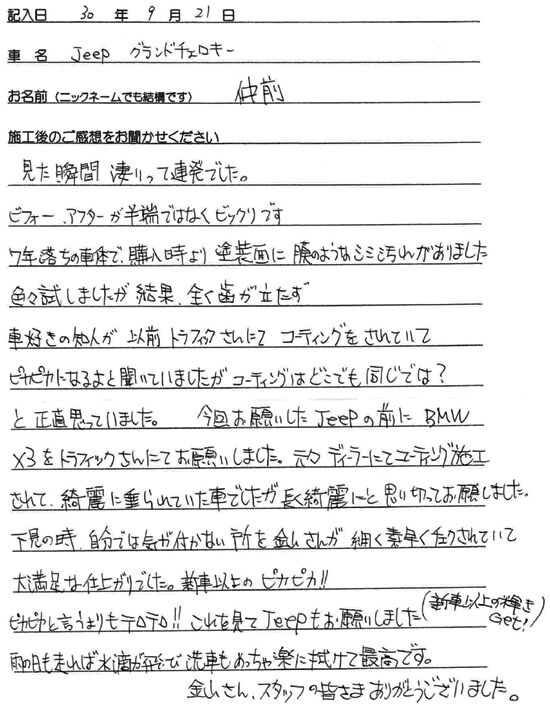 記入日 30 年 9 月 21 日
車 名 Jeep グランドチェロキー
お名前(ニックネームでも結構です) 仲前
施工後のご感想をお聞かせください
見た瞬間 凄いって連発でした。
ビフォー、アフターが半端ではなくビックリです
7年落ちの車体で、購入時より 塗装面に 膜のようなシミ汚れがありました
色々試しましたが 結果、全く歯が立たず
車好きの知人が 以前 トラフィックさんにて コーティングをされていて
ピカピカになるよと聞いていましたが コーティングはどこでも 同じでは?
と 正直思っていました。 今回お願いした Jeepの前に BMW
X3を トラフィックさんにてお願いしました。元々 ディーラーにてコーティング施工
されて、綺麗に乗られていた車でしたが 長く綺麗にと 思い切ってお願しました。
下見の時、自分では気が付かない所を 金山さんが 細く素早くチェックされていて
大満足な仕上がりでした。新車以上の ピカピカ!!
ピカピカと言うよりもテロテロ!! これを見て Jeepもお願いしました (新車以上の輝き
Get!)
雨の日も走れば水滴が飛び 洗車もめっちゃ楽に拭けて最高です。
金山さん、スタッフの皆さま ありがとうございました。